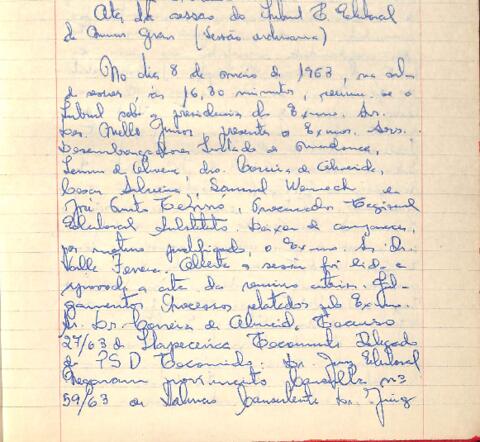 Ata da sessão do Tribunal R. Eleitoral
de Minas Gerais (Sessão ordinária)
No dia 8 de maio de 1963, na sala
de sessões, às 16,30 minutos, reuniu-se o
Tribunal sob a presidencia do Exmo. Sr.
Des. Mello Junior, presentes os Exmos. Srs.
Desembargadores Furtado de Mendonça,
de Oliveira, drs. Correia de Almeida,
Cesar Silveira, Samuel Werneck e
José Costa, Procurador Regional
Eleitoral Substituto. Deixou de comparecer,
por motivo justificado, o Exmo. Sr. Dr.
Valle Ferreira. Aberta a sessão foi lida e
aprovada a ata da reunião anterior. Jul-
gamentos. Processos relatados pelo Exmo.
Sr. Dr. Correia de Almeida. Recurso
27/63 de Itapecerica. Recorrente Delegado
do PSD Recorrido: Dr. Juiz Eleitoral
Negaram provimento. Consulta nº
59/63 de Salinas Consulente Dr. Juiz